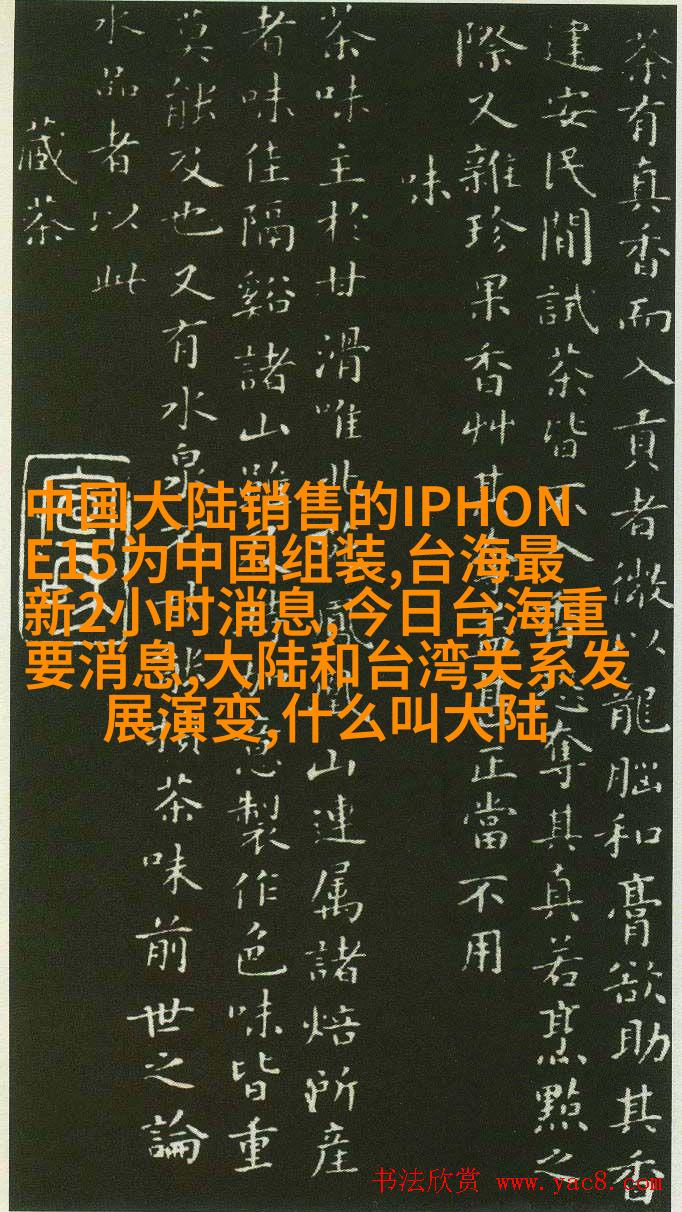 茶有真香而入貢者微以龍腦和膏欲助其香
建安民間試茶皆不入香恐奪其真若烹點之
際又雜珍果香艸其奪益甚正當不用
味
茶味主於甘滑唯北苑鳳凰山連属諸焙所産
者味佳隔谿諸山雖及時加意製作色味皆重
莫能及也又有水泉不甘能損茶味前世之論
水品者以此
藏茶
中国大陆销售的IPHON
E15为中国组装,台海最
新2小时消息,今日台海重
要消息,大陆和台湾关系发
展演变,什么叫大陆
书法欣赏 www.yac8.com